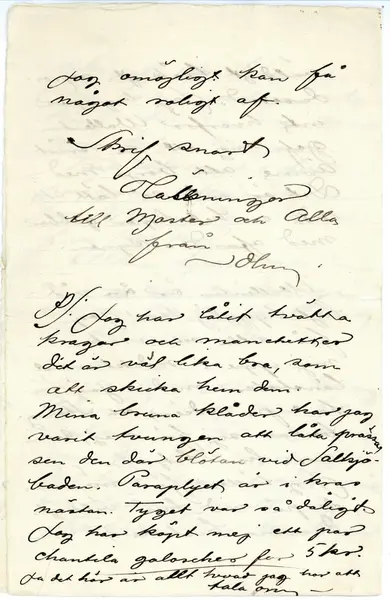 Jag omöjligt kan få
något roligt af.
Skrif snart
Hälsningar
till Moster och Alla
från
PS. Jag har låtit tvätta
kragar och manchetter
det är väl lika bra, som
att skicka hem dem.
Mina bruna kläder har jag
varit tvungen att låta präs
sen den där blötan vid Saltsjö-
baden. Paraplyet är i kras
nästan. Tyget var så dåligt
Jag har köpt mej ett par
chantila galoscher for 5 kr.
Ja det här är allt hvad jag har att
tala om